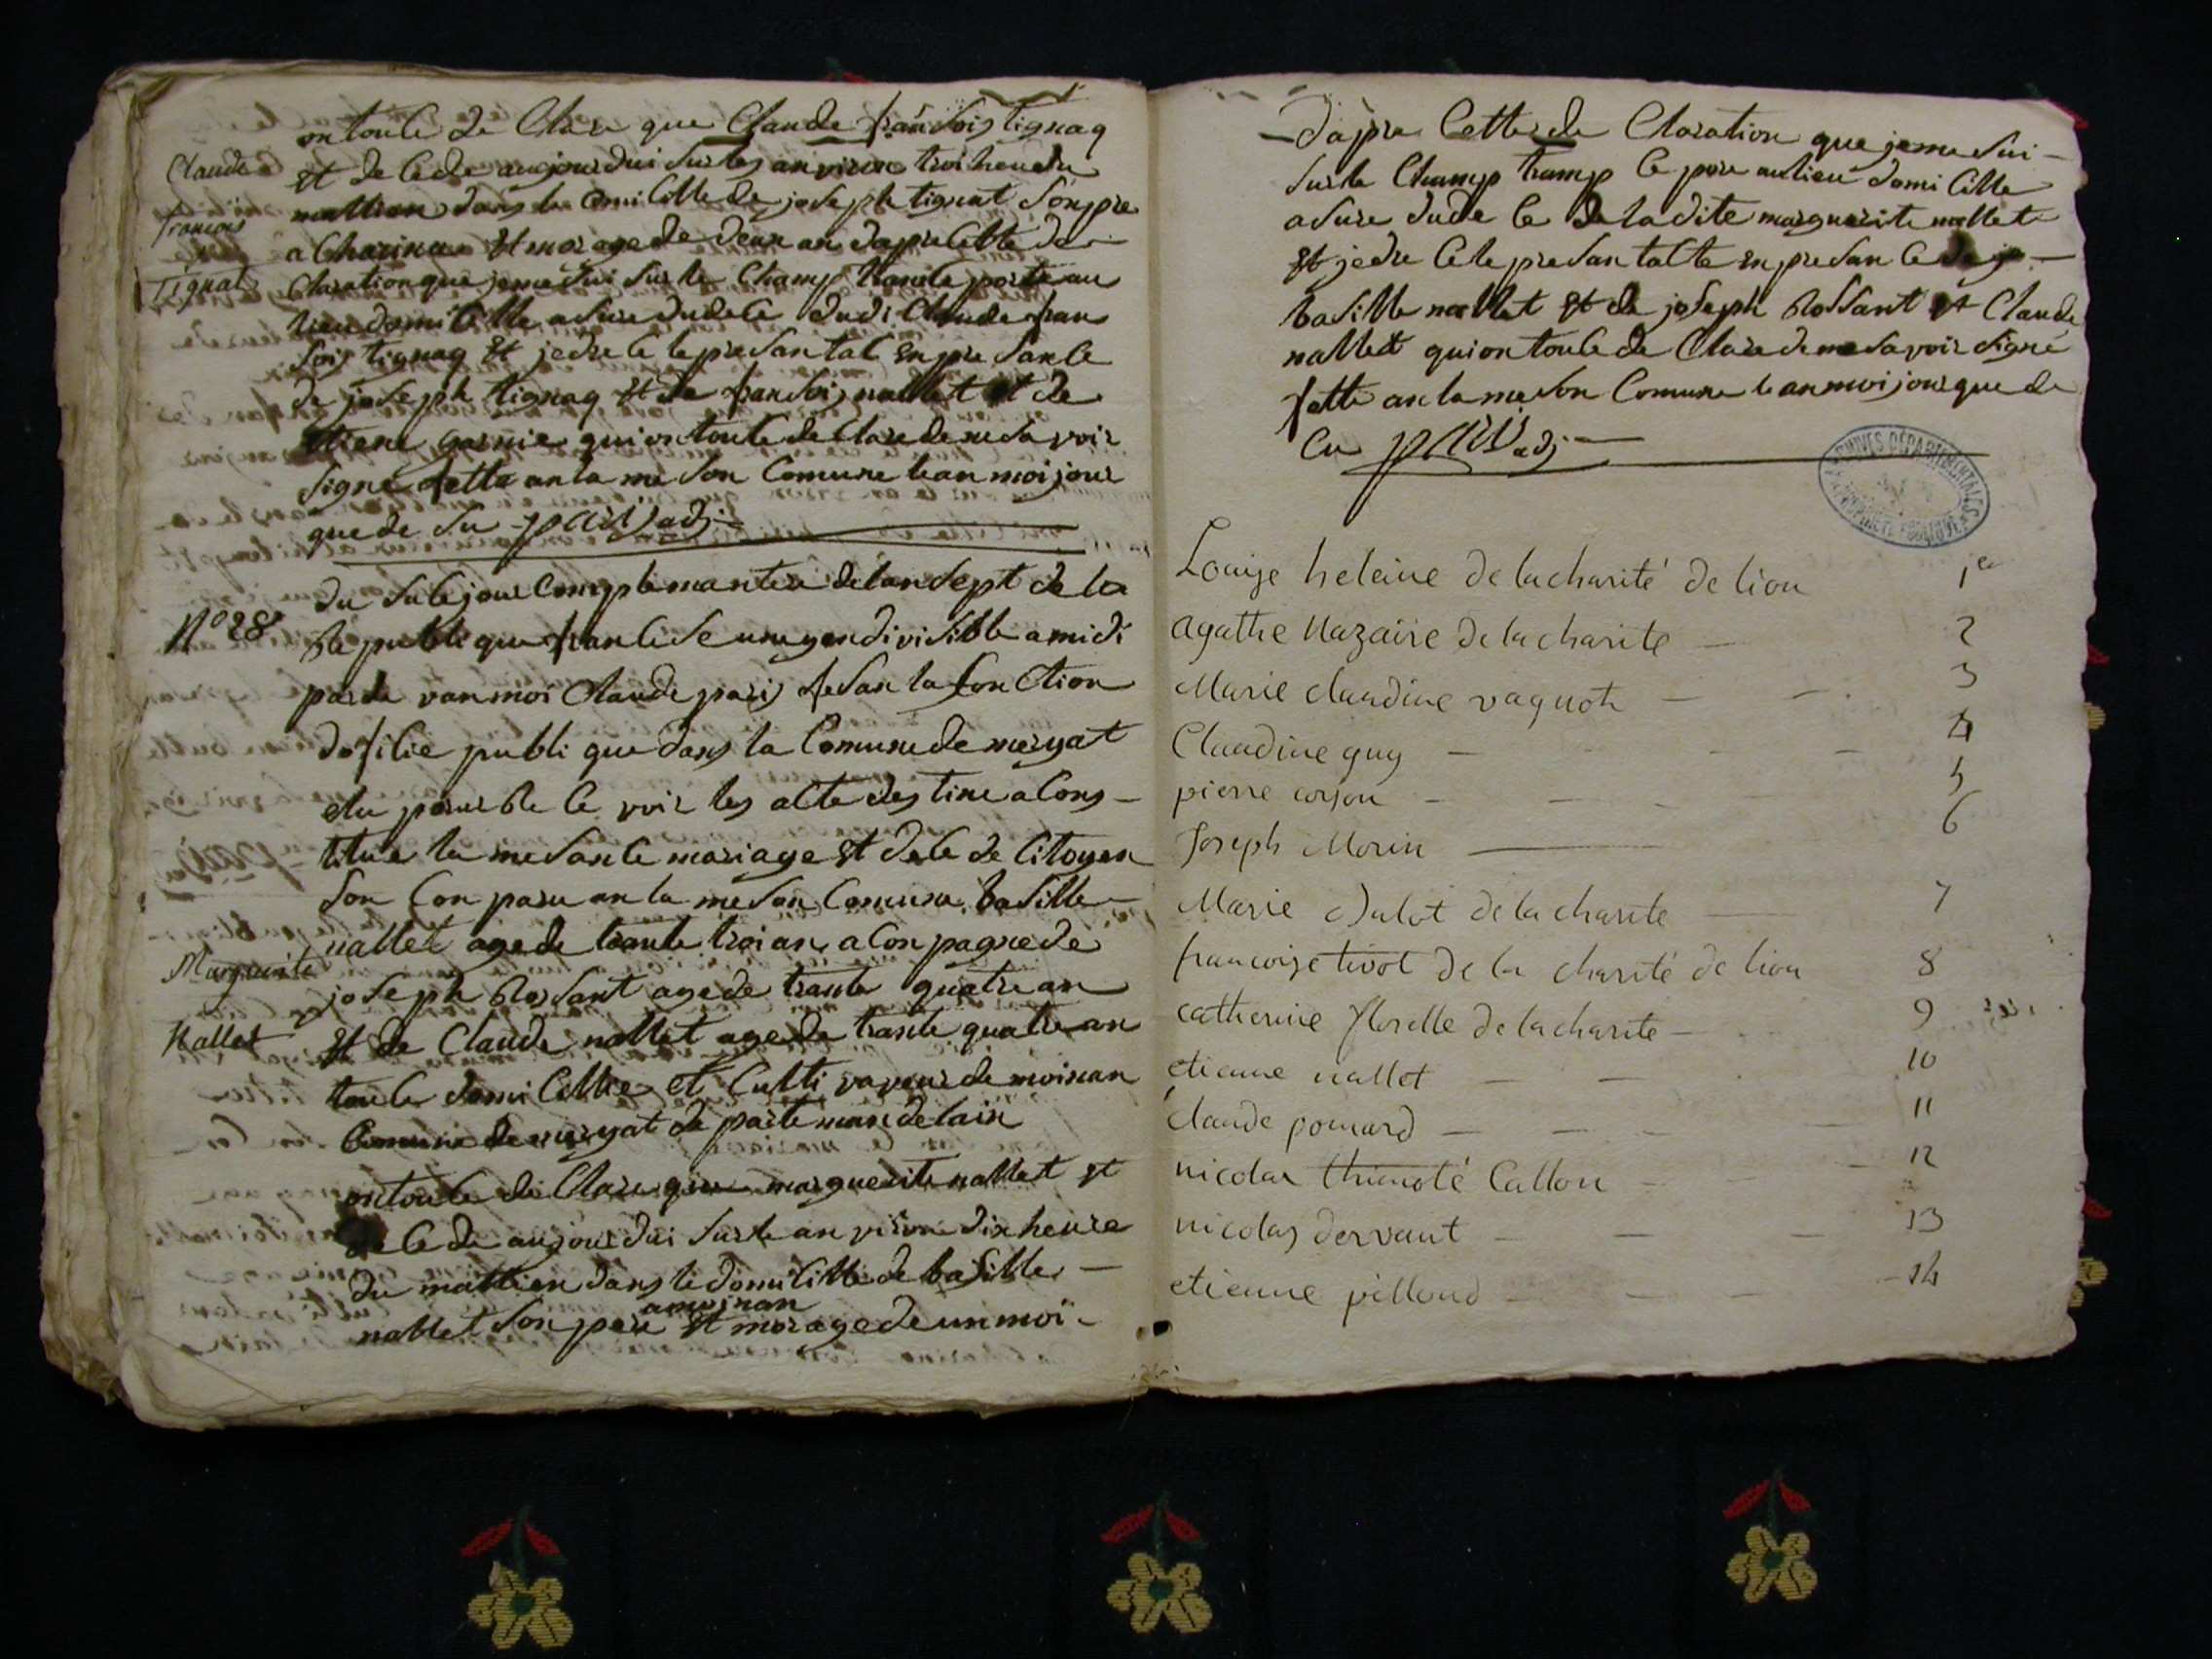 ontoule de Clare que Claude fransois tignaq
Claude
et de Cede aujourdui sur les anviron troi heu du
francois
mattien dans le domi Cille de joseph tignat son pre
a Charinas et mor age de deux an dapre Cette de
Tignat
Claration que jeme sui sur le Champ tranceporte au
lieu domi Cille asure du dece dudi Claude fran
sois tignaq et jedre Ce le presan tat en pre sance
de joseph tignaq et de fransois nallet et de
ettiene garnie qui on toule de Clare de ne sa voir
signe fette an la me son Comune le an moi jour
que de su paris adj
du sule jour Comple mantere de lan sept de la
N° 28
Republi que fran Cese une yendi visible a midi
parde van moi Claude paris fesan la fonction
dofilie publi que dans la Comune de meryat
elu pour Re Ce voir les alte des tine a Cons
titue la mesance mariage et dece de Citoyen
son Con paru an la me son Comune basille
nallet age de trante troi an a Con pagne de
Marguerite
joseph Rossant age de trante quatre an
Nallet
et de Claude nallet age de trante quatre an
toule domi Cillie et Culti vaveur de moinan
Comune de meryat de parte man de lain
ontoule de Clare que marguerite nallet et
de Ce de aujour dui sur le an viron dix heure
du mattien dans le domi Cille de basille
amoinan
nallet son pere et mor age de un moi
dapre Cette de Claration que jeme sui
sur le Champ tramp Ce pore au lieu domi Cille
asure dude Ce de la dite marguerite nallet
et jedre Ce le presan talte en presan Ce de
basille nallet et de joseph Rossant et Claude
nallet qui on toule de Clare de ne sa voir signé
fette an la me son Comune le an moi jour que de
Cu paris adj
ARCHIVES DÉPARTEMENTALES
Louise heleine de la charité de lion 1er
agathe Nazaire de la charite 2
Marie claudine vaguot 3
Claudine guy 4
pierre corjon 5
Joseph Morin 6
Marie Julot de la charite 7
francoise tivot de la charité de lion 8
catherine florelle de la charite 9
etienne nallet 10
claude ponard 11
nicolas thimoté Callon 12
nicolas dervaut 13
etienne pilloud 14